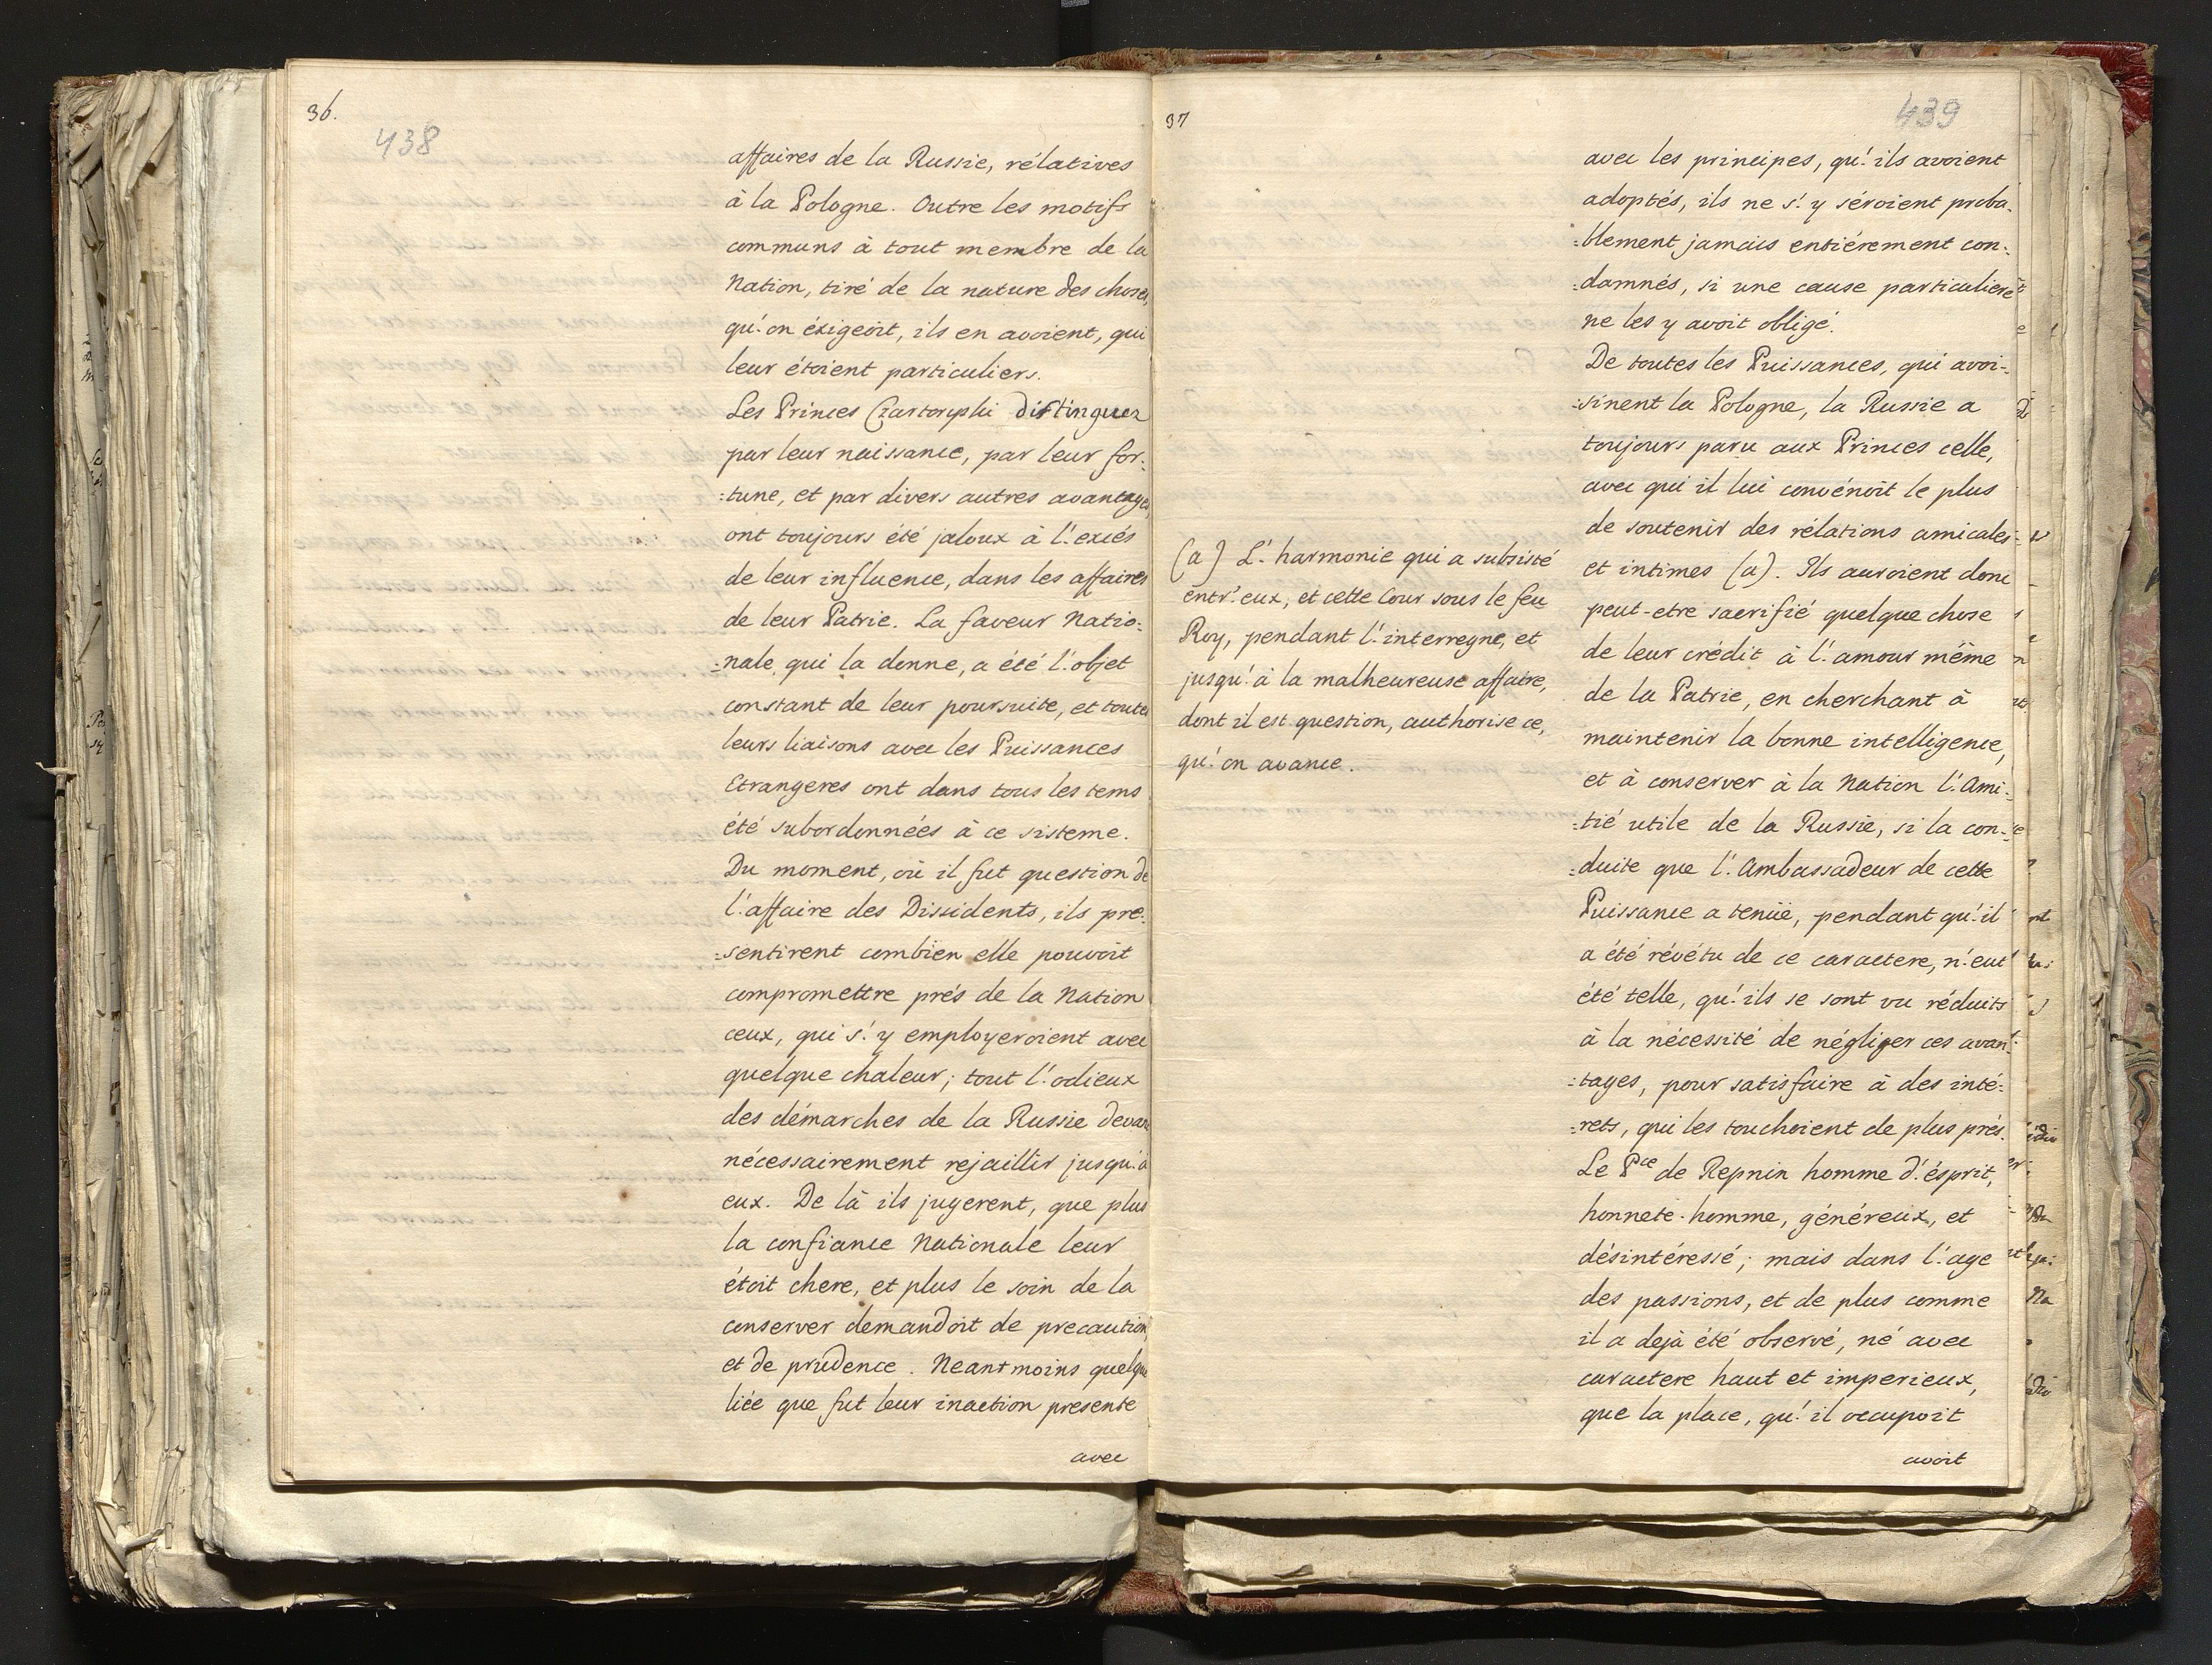 36.
438
affaires de la Russie, rélatives
à la Pologne. Outre les motifs
communs à tout membre de la
Nation, tiré de la nature des choses,
qu'on éxigeoit, ils en avoient, qui
leur étoient particuliers.
Les Princes Czartoryski distinguez
par leur naissance, par leur for:
:tune, et par divers autres avantages,
ont toujours été jaloux à l'excés
de leur influence, dans les affaires
de leur Patrie. La faveur Natio:
:nale, qui la donne, a été l'objet
constant de leur poursuite, et toutes
leurs liaisons avec les Puissances
Etrangeres ont dans tous les tems
été subordonnées à ce sisteme.
Du moment, où il fut question de
l'affaire des Dissidents, ils pre:
:sentirent combien elle pouvoit
compromettre prés de la Nation
ceux, qui s'y employeroient avec
quelque chaleur; tout l'odieux
des démarches de la Russie devant
nécessairement rejaillir jusqu'à
eux. De là ils jugerent, que plus
la confiance Nationale leur
étoit chere, et plus le soin de la
conserver demandoit de precaution,
et de prudence. Neantmoins quelque
liée que fut leur inaction presente
avec
37
439
avec les principes, qu'ils avoient
adoptés, ils ne s'y séroient proba:
:blement jamais entiérement con:
:damnés, si une cause particuliere
ne les y avoit obligé.
De toutes les Puissances, qui avoi:
:sinent la Pologne, la Russie a
toujours paru aux Princes celle,
avec qui il lui convénoit le plus
de soutenir des rélations amicales
et intimes (a). Ils auroient donc
peut-etre sacrifié quelque chose
de leur crédit à l'amour même
de la Patrie, en cherchant à
maintenir la bonne intelligence,
et à conserver à la Nation l'Ami:
:tié utile de la Russie, si la con:
:duite que l'Ambassadeur de cette
Puissance a tenüe, pendant qu'il
a été révétu de ce caractere, n'eut
été telle, qu'ils se sont vu réduits
à la nécessité de négliger ces avan:
:tages, pour satisfaire à des inté:
:rets, qui les touchoient de plus prés.
Le Pce de Repnin homme d'ésprit,
honnete-homme, généreux, et
désintéressé; mais dans l'age
des passions, et de plus comme
il a dejà été observé, né avec
caractere haut et imperieux,
que la place, qu'il occupoit
avoit
(a) L'harmonie qui a subsisté
entr'eux, et cette Cour sous le feu
Roy, pendant l'interregne, et
jusqu'à la malheureuse affaire,
dont il est question, authorise ce,
qu'on avance.